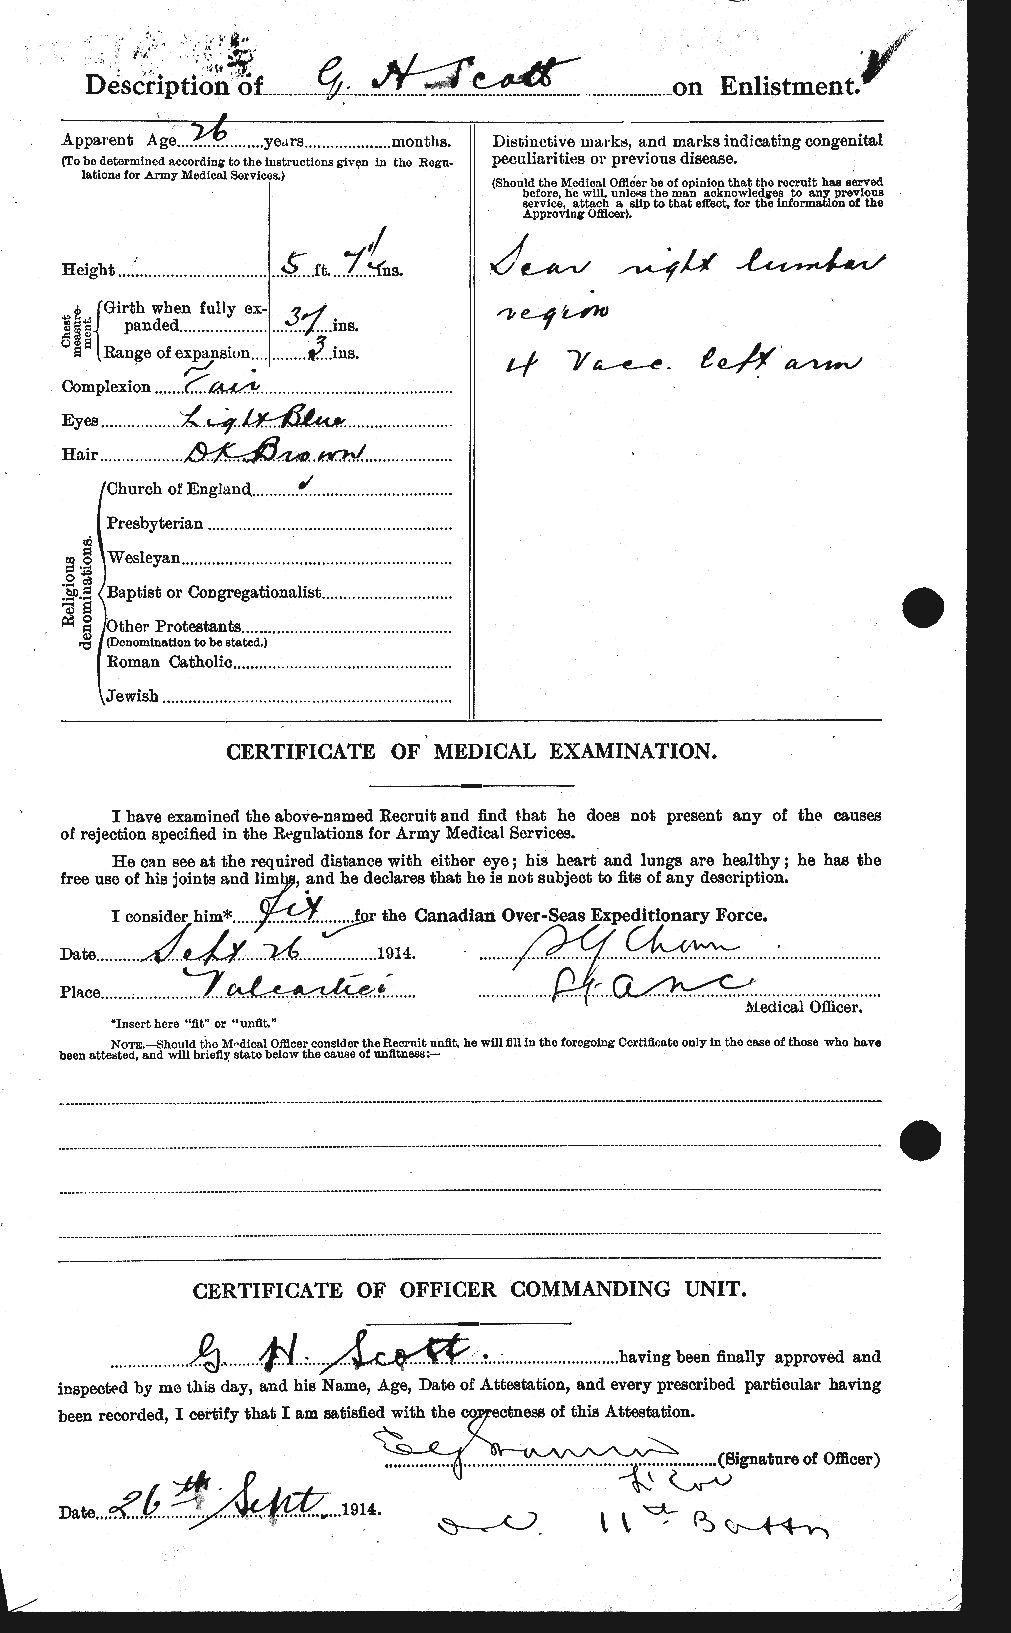 Description of G. H Scott on Enlistment.
Apparent Age 26 years months.
(To be determined according to the instructions given in the Regu-
lations for Army Medical Services.)
Height 5 ft. 7 1/4 ins.
Chest measure-ment.
Girth when fully ex-
panded 37 ins.
Range of expansion 3 ins.
Complexion Fair
Eyes Light Blue
Hair DK Brown
Religious denominations.
Church of England ✓
Presbyterian
Wesleyan
Baptist or Congregationalist
Other Protestants
(Denomination to be stated.)
Roman Catholic
Jewish
Distinctive marks, and marks indicating congenital
peculiarities or previous disease.
(Should the Medical Officer be of opinion that the recruit has served
before, he will, unless the man acknowledges to any previous
service, attach a slip to that effect, for the information of the
Approving Officer).
Scar right lumbar
region
4 Vacc. left arm
CERTIFICATE OF MEDICAL EXAMINATION.
I have examined the above-named Recruit and find that he does not present any of the causes
of rejection specified in the Regulations for Army Medical Services.
He can see at the required distance with either eye; his heart and lungs are healthy; he has the
free use of his joints and limbs, and he declares that he is not subject to fits of any description.
I consider him* fit for the Canadian Over-Seas Expeditionary Force.
Date Sept 26 1914.
Place Valcartier
Medical Officer.
*Insert here "fit" or "unfit."
NOTE.—Should the Medical Officer consider the Recruit unfit, he will fill in the foregoing Certificate only in the case of those who have
been attested, and will briefly state below the cause of unfitness:—
CERTIFICATE OF OFFICER COMMANDING UNIT.
G. H. Scott. having been finally approved and
inspected by me this day, and his Name, Age, Date of Attestation, and every prescribed particular having
been recorded, I certify that I am satisfied with the correctness of this Attestation.
(Signature of Officer)
Lt Col
Date 26th Sept 1914.
O.C. 11th Battn